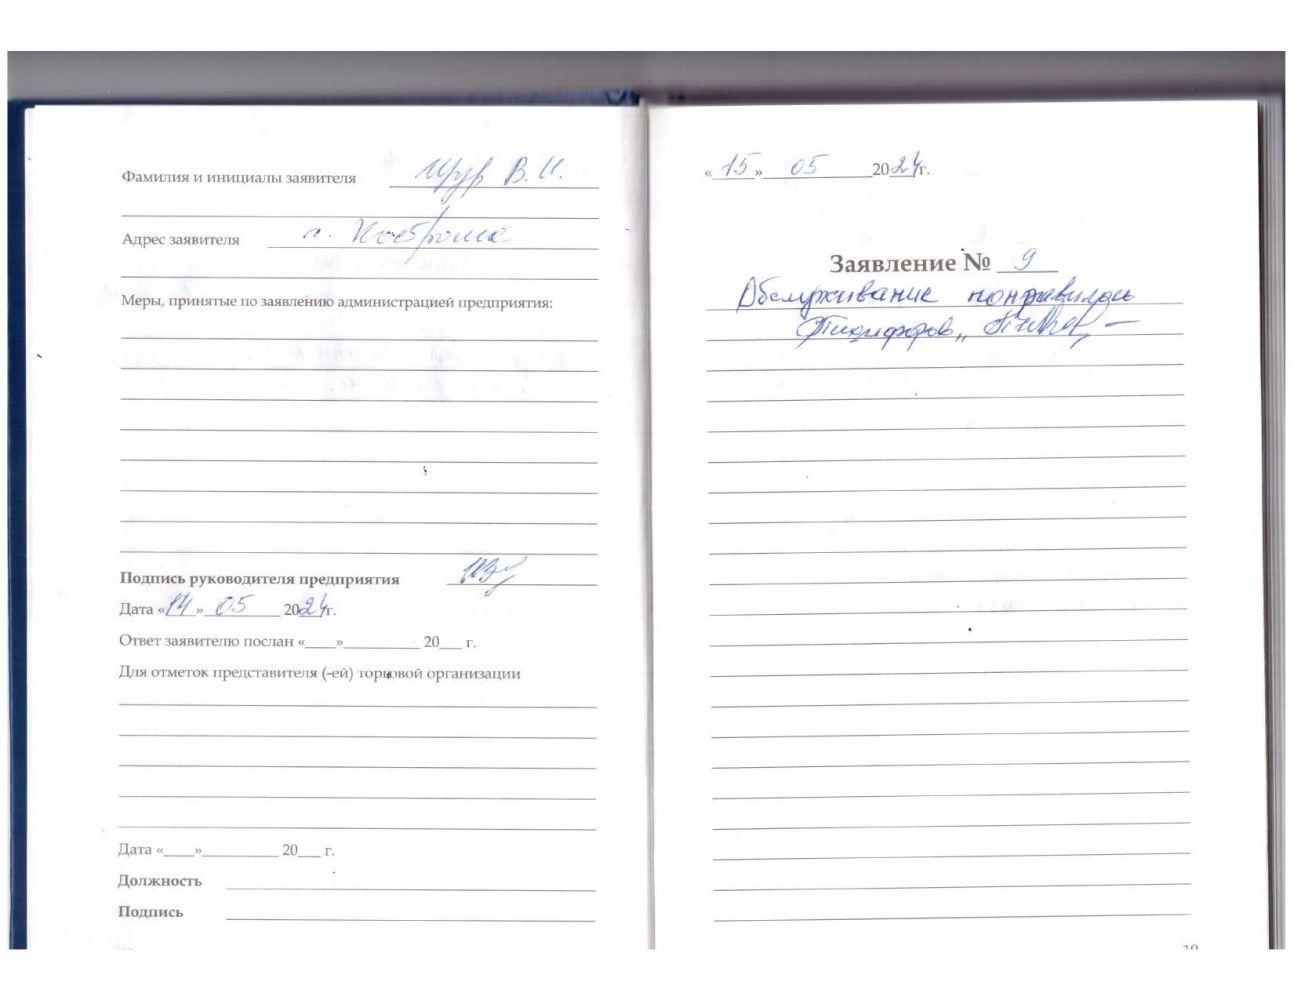 Фамилия и инициалы заявителя В. И.
Адрес заявителя г. Кострома
Меры, принятые по заявлению администрацией предприятия:
Подпись руководителя предприятия
Дата «14» 05 2024г.
Ответ заявителю послан «____»__________ 20___ г.
Для отметок представителя (-ей) торговой организации
Дата «____»__________ 20___ г.
Должность
Подпись
«15» 05 2024г.
Заявление № 9
Обслуживание понравилось